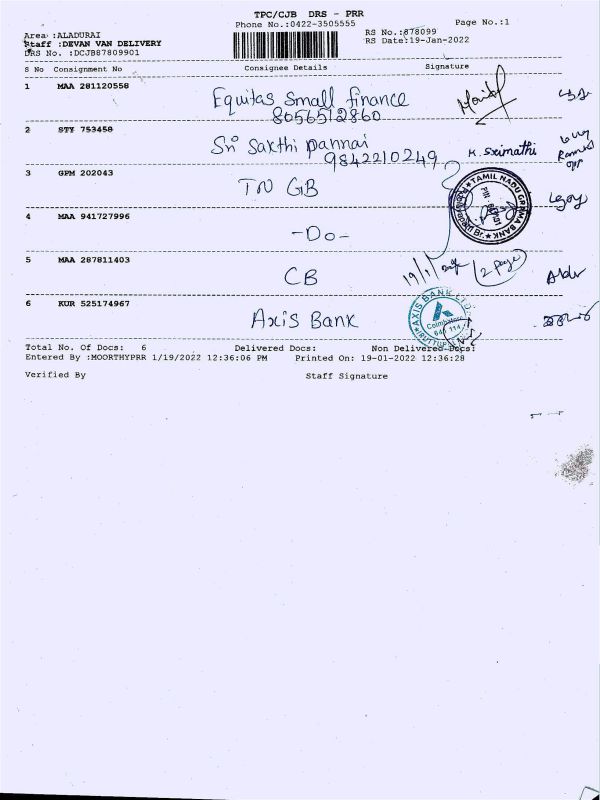 TPC/CJB DRS - PRR
Phone No.:0422-3505555 Page No.:1
Area :ALADURAI RS No.:878099
Staff :DEVAN VAN DELIVERY RS Date:19-Jan-2022
DRS No. :DCJB87809901
S No Consignment No Consignee Details Signature
1 MAA 281120558 Equitas Small finance
8056512860
2 STY 753458 Sri Sakthi pannai K. Srimathi
9842210249
3 GPM 202043 TN GB
TAMIL NADU GRAMA BANK
4 MAA 941727996 -Do-
5 MAA 287811403 CB 19/1/ 2 page
6 KUR 525174967 Axis Bank
AXIS BANK LTD
Coimbatore
Total No. Of Docs: 6 Delivered Docs: Non Delivered Docs:
Entered By :MOORTHYPRR 1/19/2022 12:36:06 PM Printed On: 19-01-2022 12:36:28
Verified By Staff Signature